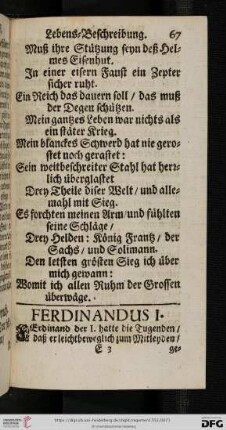 Lebens-Beschreibung. 67
Muß ihre Stützung seyn deß Hel-
mes Eisenhut.
In einer eisern Faust ein Zepter
sicher ruht.
Ein Reich das dauern soll / das muß
der Degen schützen.
Mein gantzes Leben war nichts als
ein stäter Krieg.
Mein blanckes Schwerd hat nie gero-
stet noch gerastet:
Sein weitbeschreiter Stahl hat herz-
lich überglastet
Drey Theile diser Welt / und alle-
mahl mit Sieg.
Es forchten meinen Arm / und fühlten
seine Schläge /
Drey Helden: König Frantz / der
Sachs / und Soliman.
Den letsten grösten Sieg ich über
mich gewann:
Womit ich allen Ruhm der Grossen
überwäge.
FERDINANDUS I.
FErdinand der I. hatte die Tugenden /
daß er leichtbeweglich zum Mitleyden /
E 3 ge-
DFG